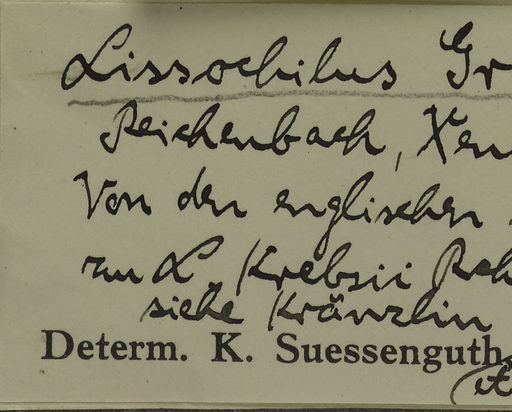 Lissochilus Gr
Reichenbach, Xen
Von den englischen
zu L. Krebsii Rch
siehe Kränzlin
Determ. K. Suessenguth